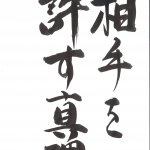 相手を
許す真理